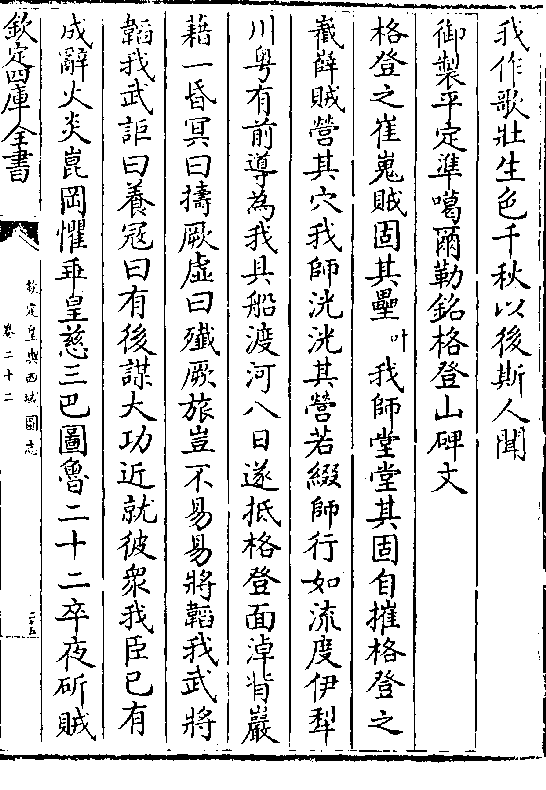 我作歌壯生色千秋以後斯人聞
御製平定準噶爾勒銘格登山碑文
格登之崔嵬賊固其壘叶我師堂堂其固自摧格登之
嶻嶭賊營其穴我師洸洸其營若綴師行如流度伊犁
川粤有前導為我具船渡河八日遂抵格登面淖背巖
藉一昏冥曰擣厥虛曰殲厥旅豈不易易將韜我武將
韜我武詎曰養冦曰有後謀大功近就彼衆我臣已有
成辭火炎崑岡懼乖皇慈三巴圖魯二十二卒夜斫賊
欽定四庫全書
欽定皇輿西域圖志
卷二十二
二十五